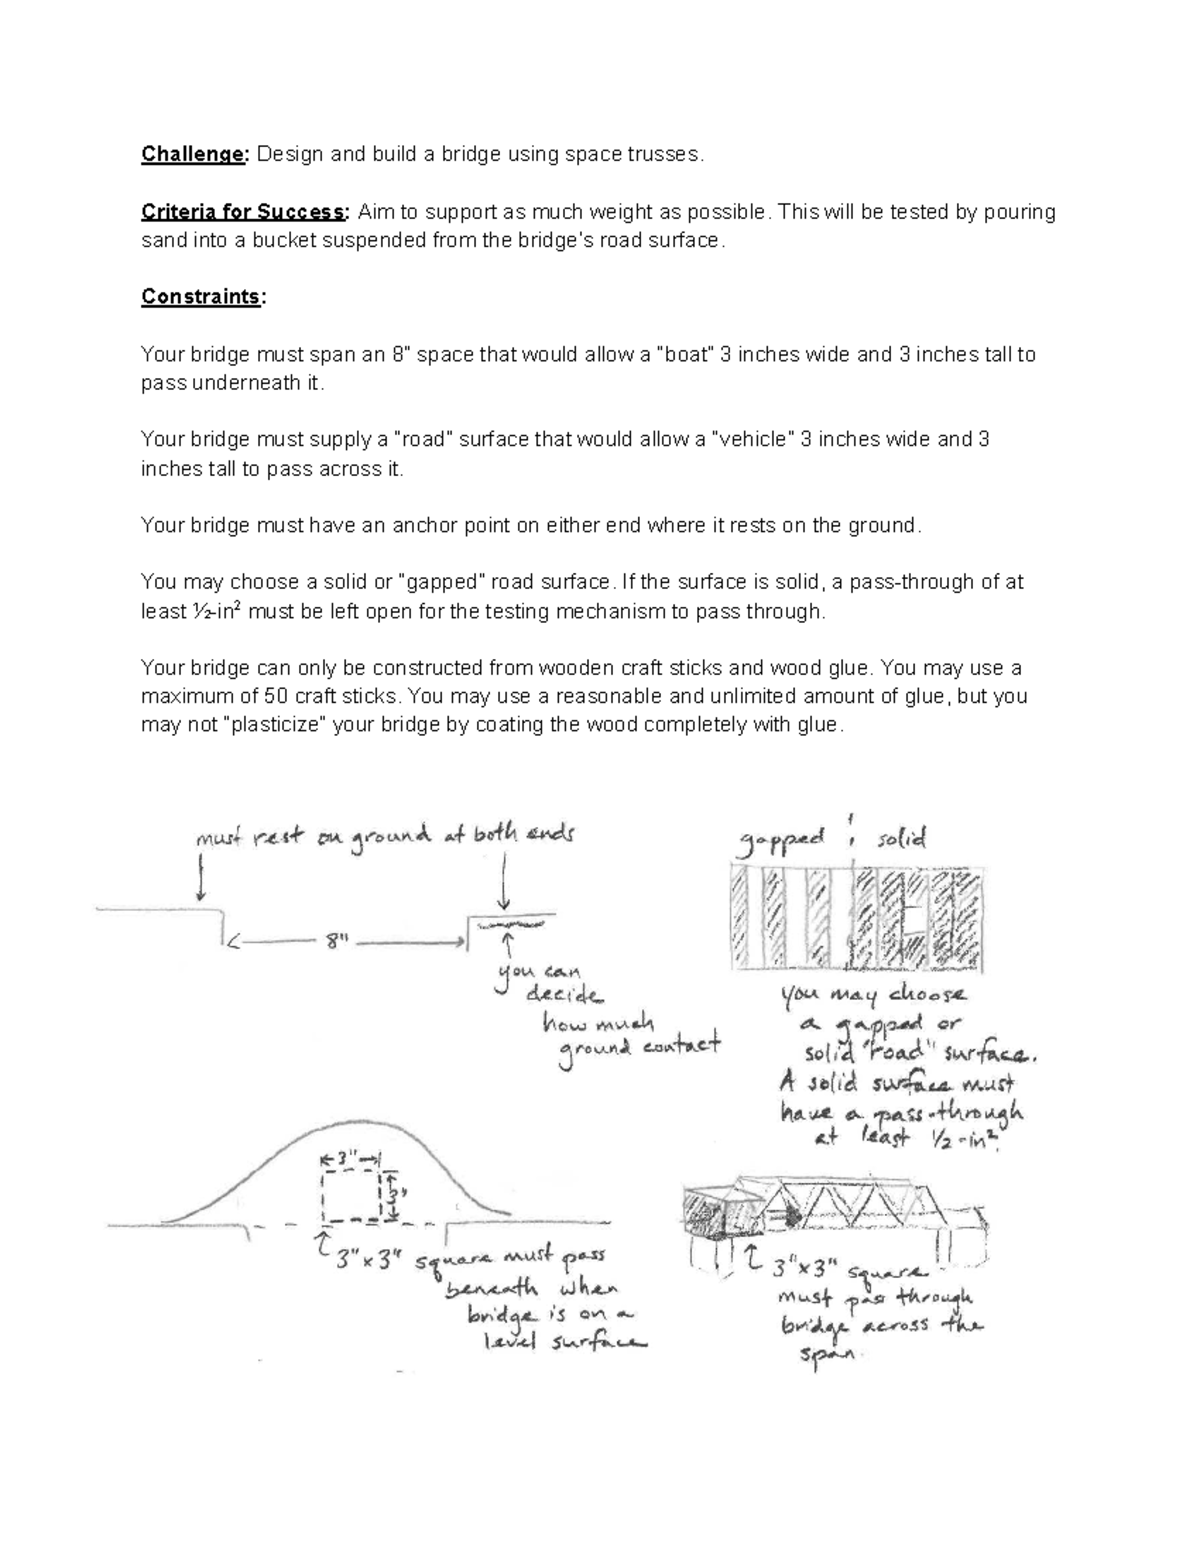 Challenge: Design and build a bridge using space trusses.
Criteria for Success: Aim to support as much weight as possible. This will be tested by pouring
sand into a bucket suspended from the bridge's road surface.
Constraints:
Your bridge must span an 8" space that would allow a "boat" 3 inches wide and 3 inches tall to
pass underneath it.
Your bridge must supply a "road" surface that would allow a "vehicle" 3 inches wide and 3
inches tall to pass across it.
Your bridge must have an anchor point on either end where it rests on the ground.
You may choose a solid or "gapped" road surface. If the surface is solid, a pass-through of at
least ½-in² must be left open for the testing mechanism to pass through.
Your bridge can only be constructed from wooden craft sticks and wood glue. You may use a
maximum of 50 craft sticks. You may use a reasonable and unlimited amount of glue, but you
may not "plasticize" your bridge by coating the wood completely with glue.
must rest on ground at both ends
8"
you can
decide
how much
ground contact
gapped solid
you may choose
a gapped or
solid "road" surface.
A solid surface must
have a pass-through
at least 1/2-in².
3"
3"
3"x3" square must pass
beneath when
bridge is on a
level surface
3"x3" square
must pass through
bridge across the
span.